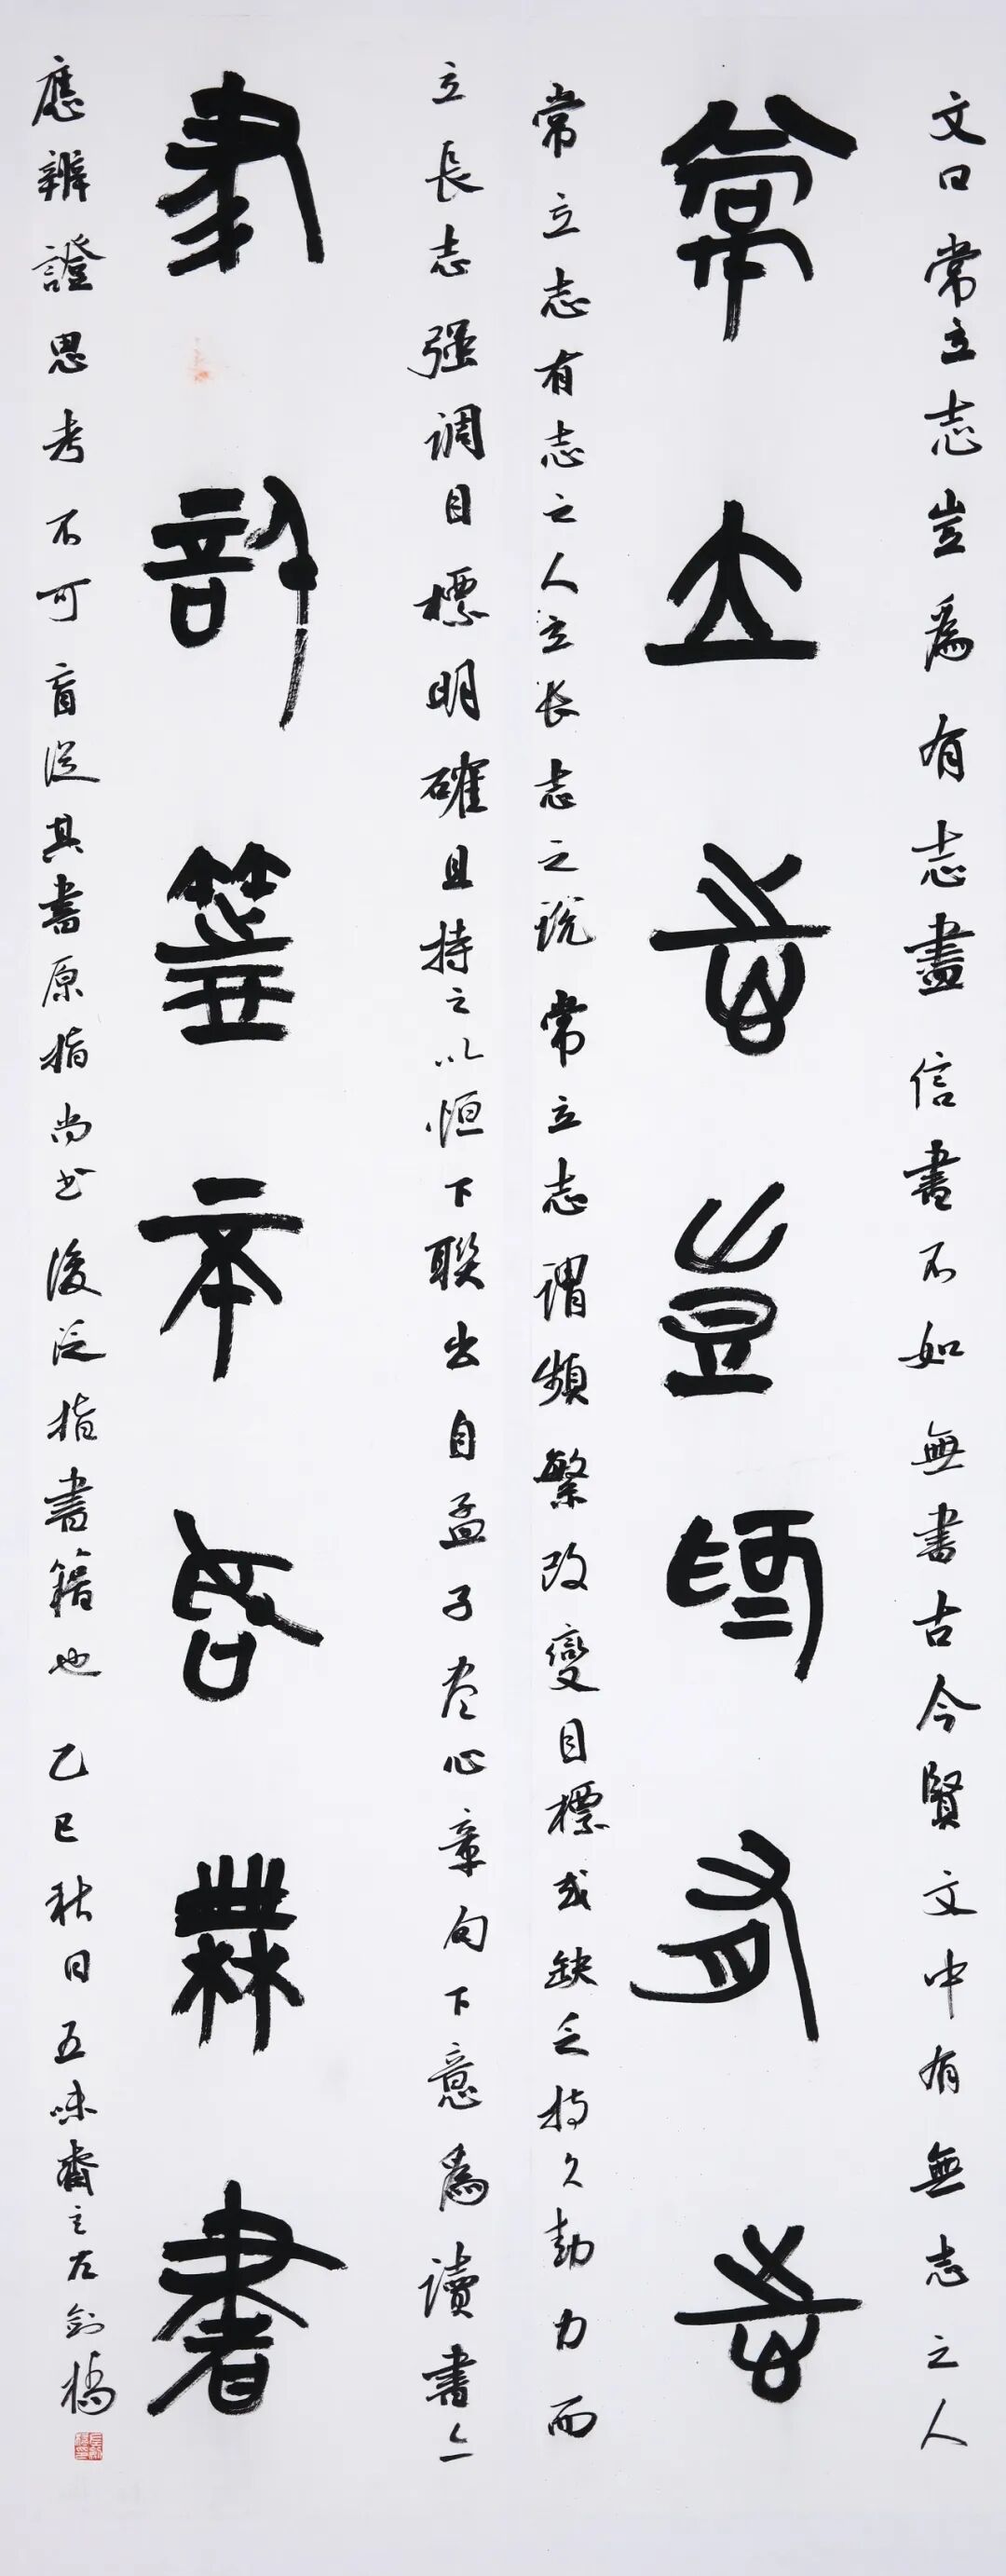 文曰常立志豈爲有志盡信書不如無書古今賢文中有無志之人
常立志豈爲有志
常立志有志之人立长志之説常立志謂頻繁改變目標或缺乏持久動力而
立長志强调目標明確且持之以恒下聯出自孟子尽心章句下意爲讀書
盡信書不如無書
應辨證思考不可盲從其書原指尚书後泛指書籍也乙巳秋日五味齋主左剑橋